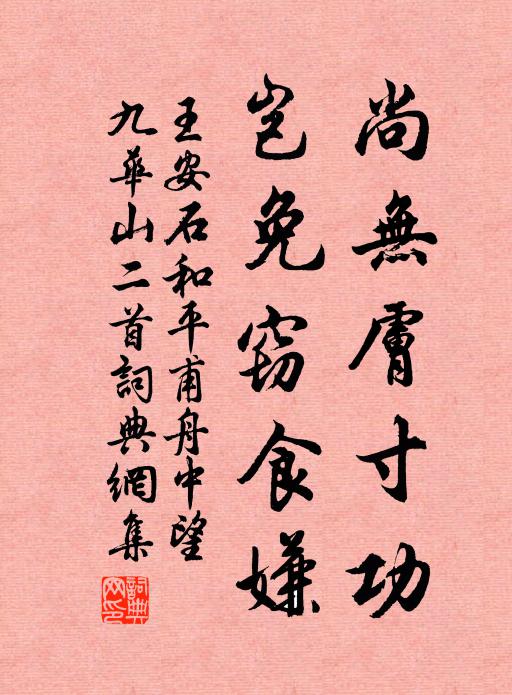 尚無膚寸功
豈免窃食嫌
王安石和平甫舟中望
九華山二首詞典網集
詞典
网印